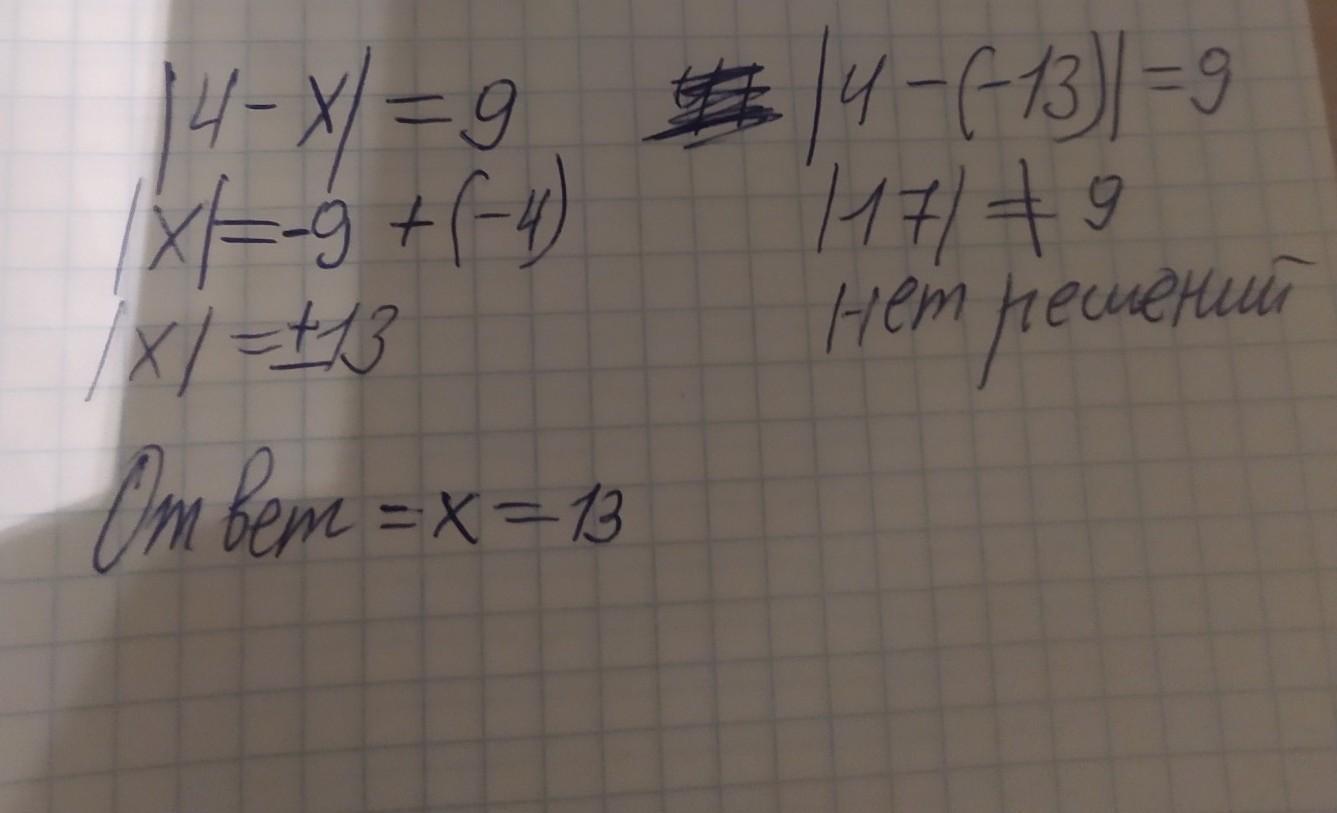 |4 - x| = 9
|x| = -9 + (-4)
|x| = ±13
Ответ = x = 13
|4 - (-13)| = 9
|17| ≠ 9
нет решений